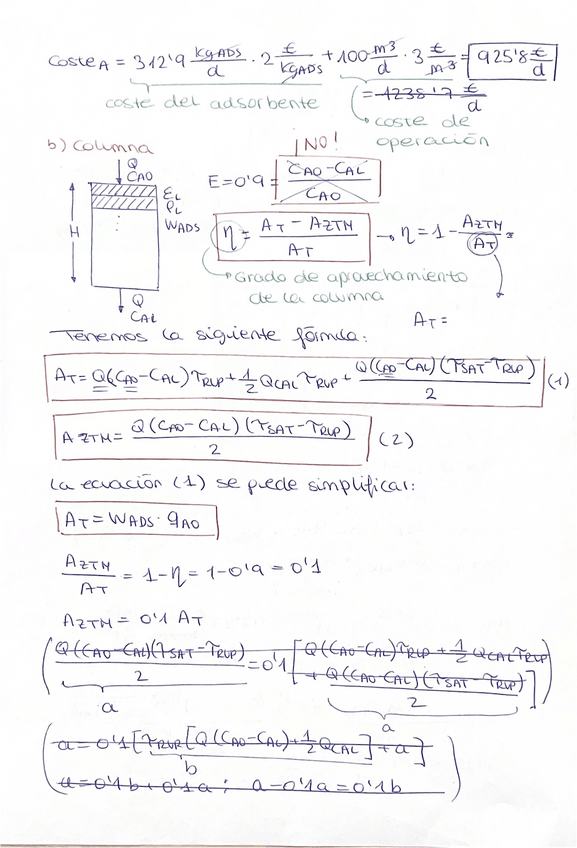 Coste A = 312'9 kgADS/d · 2 €/kgADS + 100 m³/d · 3 €/m³ = 925'8 €/d
= 1238'7 €/d
coste del adsorbente
coste de operación
b) Columna
¡NO!
Q
CAO
E = 0'9 = (CAO - CAL)/CAO
H
EL
ρL
WADS
η = (AT - AZTM)/AT → η = 1 - AZTM/AT =
Grado de aprovechamiento
de la columna
Q
CAL
AT =
Tenemos la siguiente fórmula:
AT = Q(CAO - CAL) τRUP + 1/2 QCAL τRUP + Q(CAO - CAL)(τSAT - τRUP)/2 (1)
AZTM = Q(CAO - CAL)(τSAT - τRUP)/2 (2)
La ecuación (1) se puede simplificar:
AT = WADS · qAO
AZTM/AT = 1 - η = 1 - 0'9 = 0'1
AZTM = 0'1 AT
(Q(CAO - CAL)(τSAT - τRUP)/2 = 0'1 [Q(CAO - CAL)τRUP + 1/2 QCAL τRUP
+ Q(CAO - CAL)(τSAT - τRUP)/2])
a
a
(a = 0'1 [τRUP [Q(CAO - CAL) + 1/2 QCAL] + a]
b
a = 0'1b + 0'1a ; a - 0'1a = 0'1b)